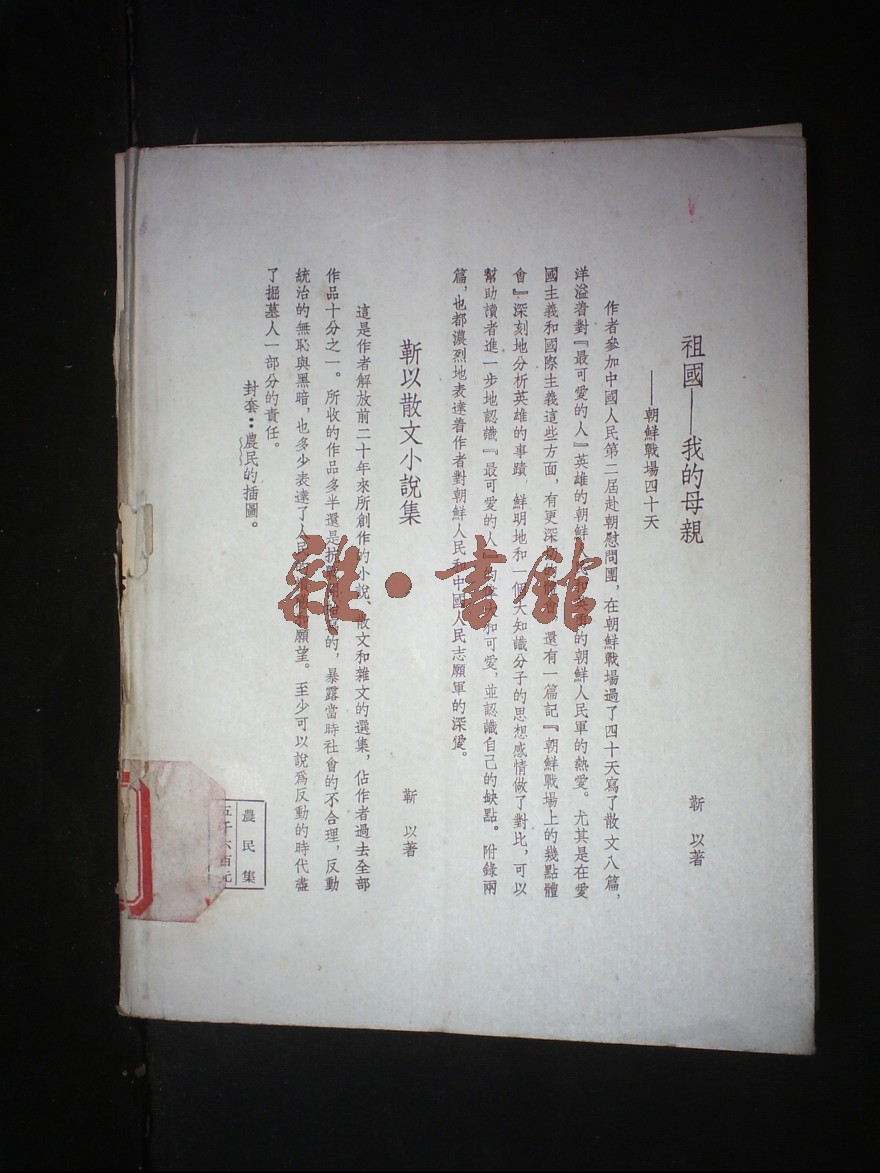 祖國——我的母親
——朝鮮戰場四十天
靳 以著
作者參加中國人民第二屆赴朝慰問團，在朝鮮戰場過了四十天寫了散文八篇，
洋溢着對『最可愛的人』英雄的朝鮮 和英勇的朝鮮人民軍的熱愛。尤其是在愛
國主義和國際主義這些方面，有更深 還有一篇記『朝鮮戰場上的幾點體
會』深刻地分析英雄的事蹟，鮮明地和一個大知識分子的思想感情做了對比，可以
幫助讀者進一步地認識『最可愛的人』的 和可愛，並認識自己的缺點。附錄兩
篇，也都濃烈地表達着作者對朝鮮人民和中國人民志願軍的深愛。
靳以散文小說集
靳 以著
這是作者解放前二十年來所創作的小說、散文和雜文的選集，佔作者過去全部
作品十分之一。所收的作品多半還是抗 的，暴露當時社會的不合理，反動
統治的無恥與黑暗，也多少表達了人民 和願望。至少可以說爲反動的時代盡
了掘墓人一部分的責任。
封套：農民的插圖。
農民集
五千六百元
雜·書館